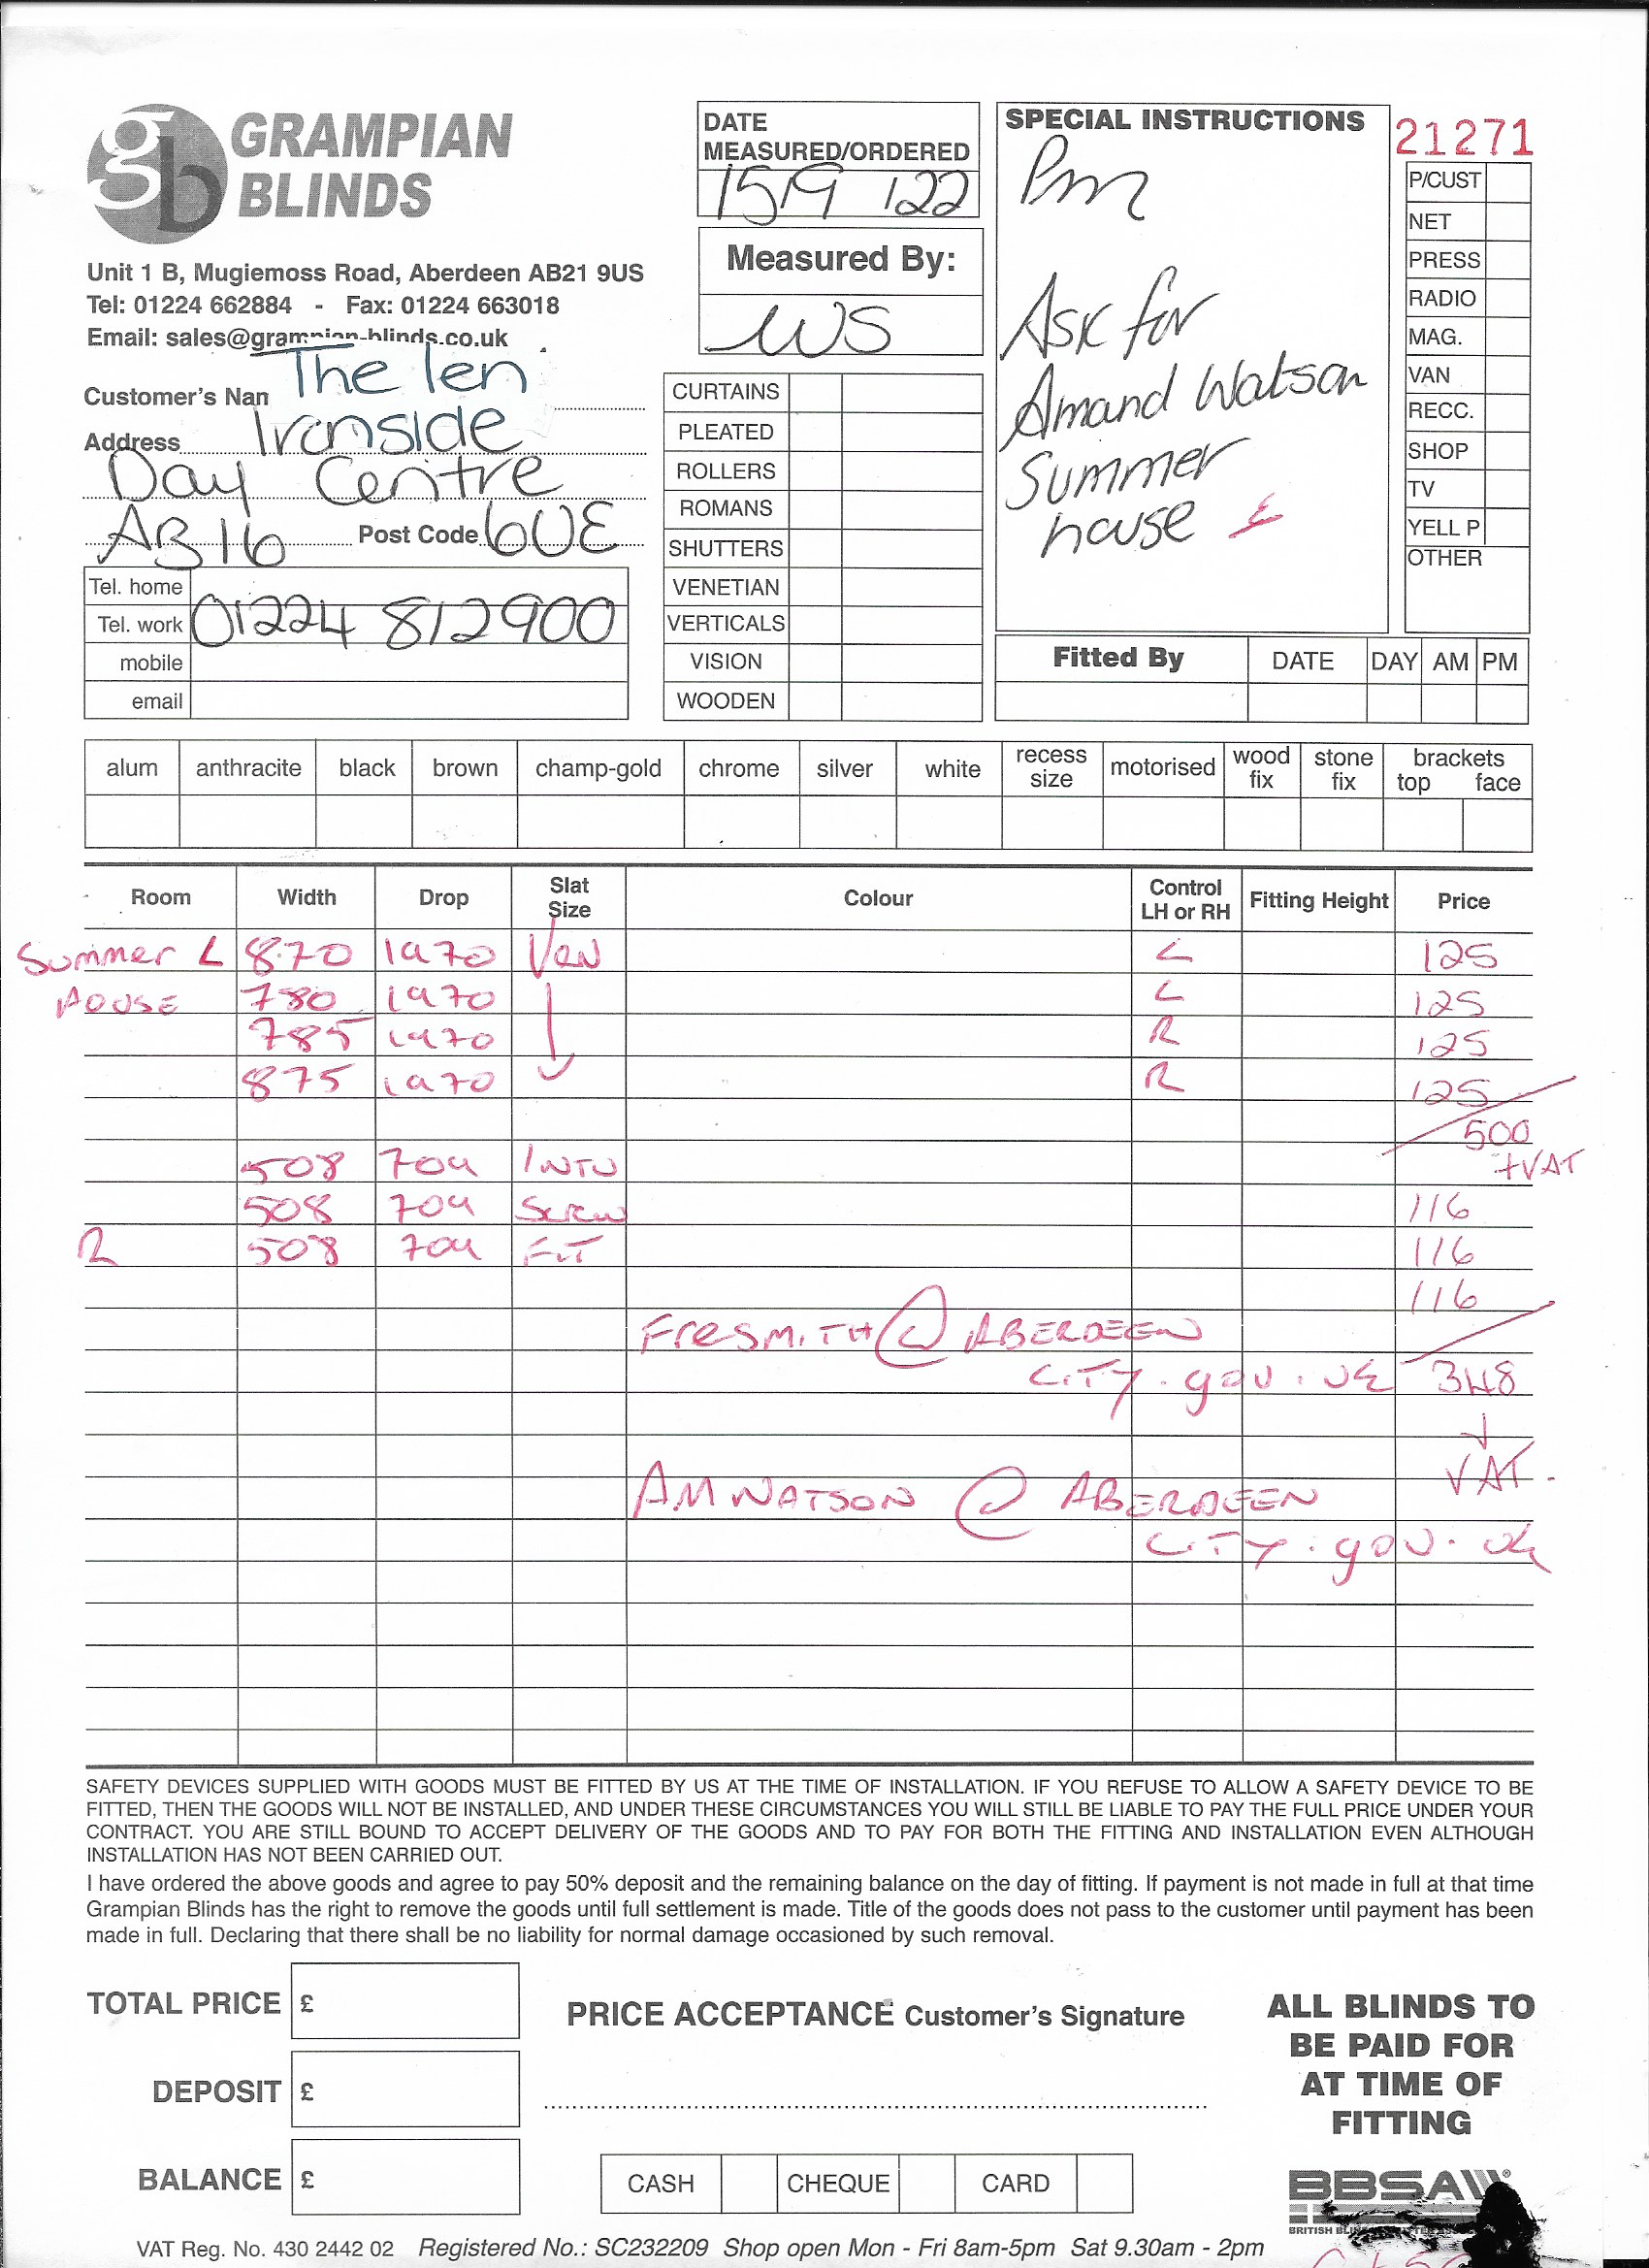 gb GRAMPIAN
BLINDS
Unit 1 B, Mugiemoss Road, Aberdeen AB21 9US
Tel: 01224 662884 - Fax: 01224 663018
Email: sales@grampian-blinds.co.uk
Customer's Nan The len
Address Ironside
Day Centre
AB16 Post Code 6UE
Tel. home
Tel. work 01224 812900
mobile
email
DATE
MEASURED/ORDERED
15/9/22
Measured By:
WS
CURTAINS
PLEATED
ROLLERS
ROMANS
SHUTTERS
VENETIAN
VERTICALS
VISION
WOODEN
SPECIAL INSTRUCTIONS
Pm
Ask for
Amand Watson
Summer
house
21271
P/CUST
NET
PRESS
RADIO
MAG.
VAN
RECC.
SHOP
TV
YELL P
OTHER
Fitted By DATE DAY AM PM
alum anthracite black brown champ-gold chrome silver white recess size motorised wood fix stone fix brackets top face
Room Width Drop Slat Size Colour Control LH or RH Fitting Height Price
Summer L 870 1970 Ven L 125
House 780 1970 L 125
785 1970 R 125
875 1970 R 125
500
+VAT
508 704 INTU
508 704 Screw 116
R 508 704 FIT 116
116
FreSMITH@ABERDEEN
CITY.gov.uk 348
+
VAT.
AMWATSON @ ABERDEEN
CITY.gov.uk
SAFETY DEVICES SUPPLIED WITH GOODS MUST BE FITTED BY US AT THE TIME OF INSTALLATION. IF YOU REFUSE TO ALLOW A SAFETY DEVICE TO BE
FITTED, THEN THE GOODS WILL NOT BE INSTALLED, AND UNDER THESE CIRCUMSTANCES YOU WILL STILL BE LIABLE TO PAY THE FULL PRICE UNDER YOUR
CONTRACT. YOU ARE STILL BOUND TO ACCEPT DELIVERY OF THE GOODS AND TO PAY FOR BOTH THE FITTING AND INSTALLATION EVEN ALTHOUGH
INSTALLATION HAS NOT BEEN CARRIED OUT.
I have ordered the above goods and agree to pay 50% deposit and the remaining balance on the day of fitting. If payment is not made in full at that time
Grampian Blinds has the right to remove the goods until full settlement is made. Title of the goods does not pass to the customer until payment has been
made in full. Declaring that there shall be no liability for normal damage occasioned by such removal.
TOTAL PRICE £
DEPOSIT £
BALANCE £
PRICE ACCEPTANCE Customer's Signature
CASH CHEQUE CARD
ALL BLINDS TO
BE PAID FOR
AT TIME OF
FITTING
BBSA
BRITISH
VAT Reg. No. 430 2442 02 Registered No.: SC232209 Shop open Mon - Fri 8am-5pm Sat 9.30am - 2pm